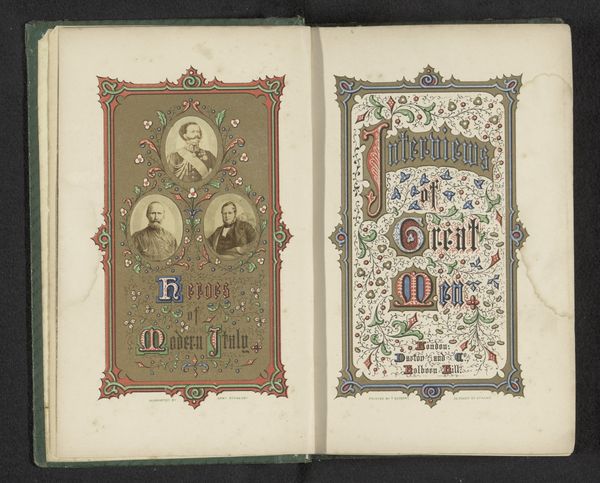 Heroes
of
Modern Italy
Interviews
of
Great
Men
London:
Darton and Co.
Holborn Hill.